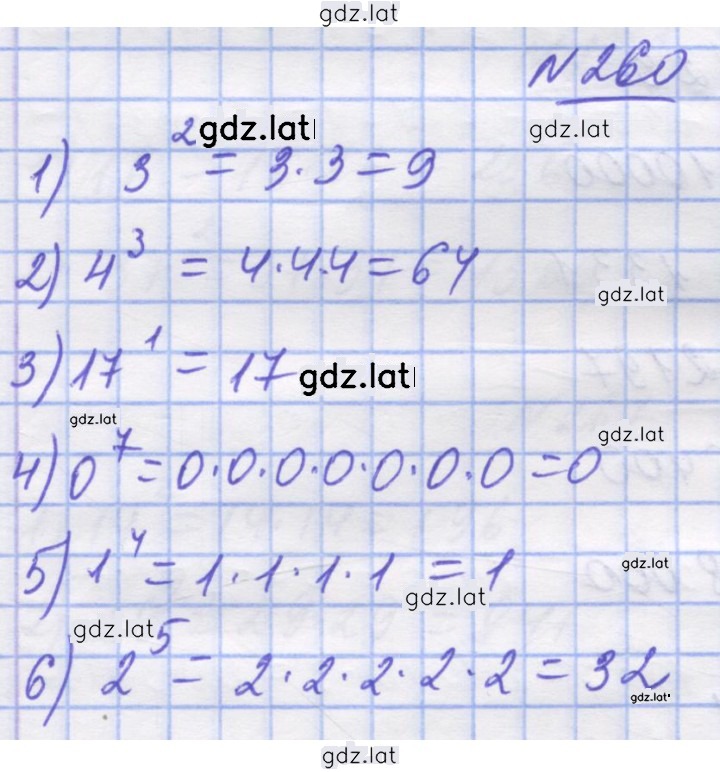 gdz.lat
№ 260
gdz.lat
1) 3² gdz.lat = 3·3=9
2) 4³ = 4·4·4=64
gdz.lat
3) 17¹ = 17
gdz.lat
gdz.lat
gdz.lat
4) 0⁷=0·0·0·0·0·0·0=0
5) 1⁴=1·1·1·1=1
gdz.lat
gdz.lat
gdz.lat
6) 2⁵=2·2·2·2·2=32
gdz.lat
gdz.lat